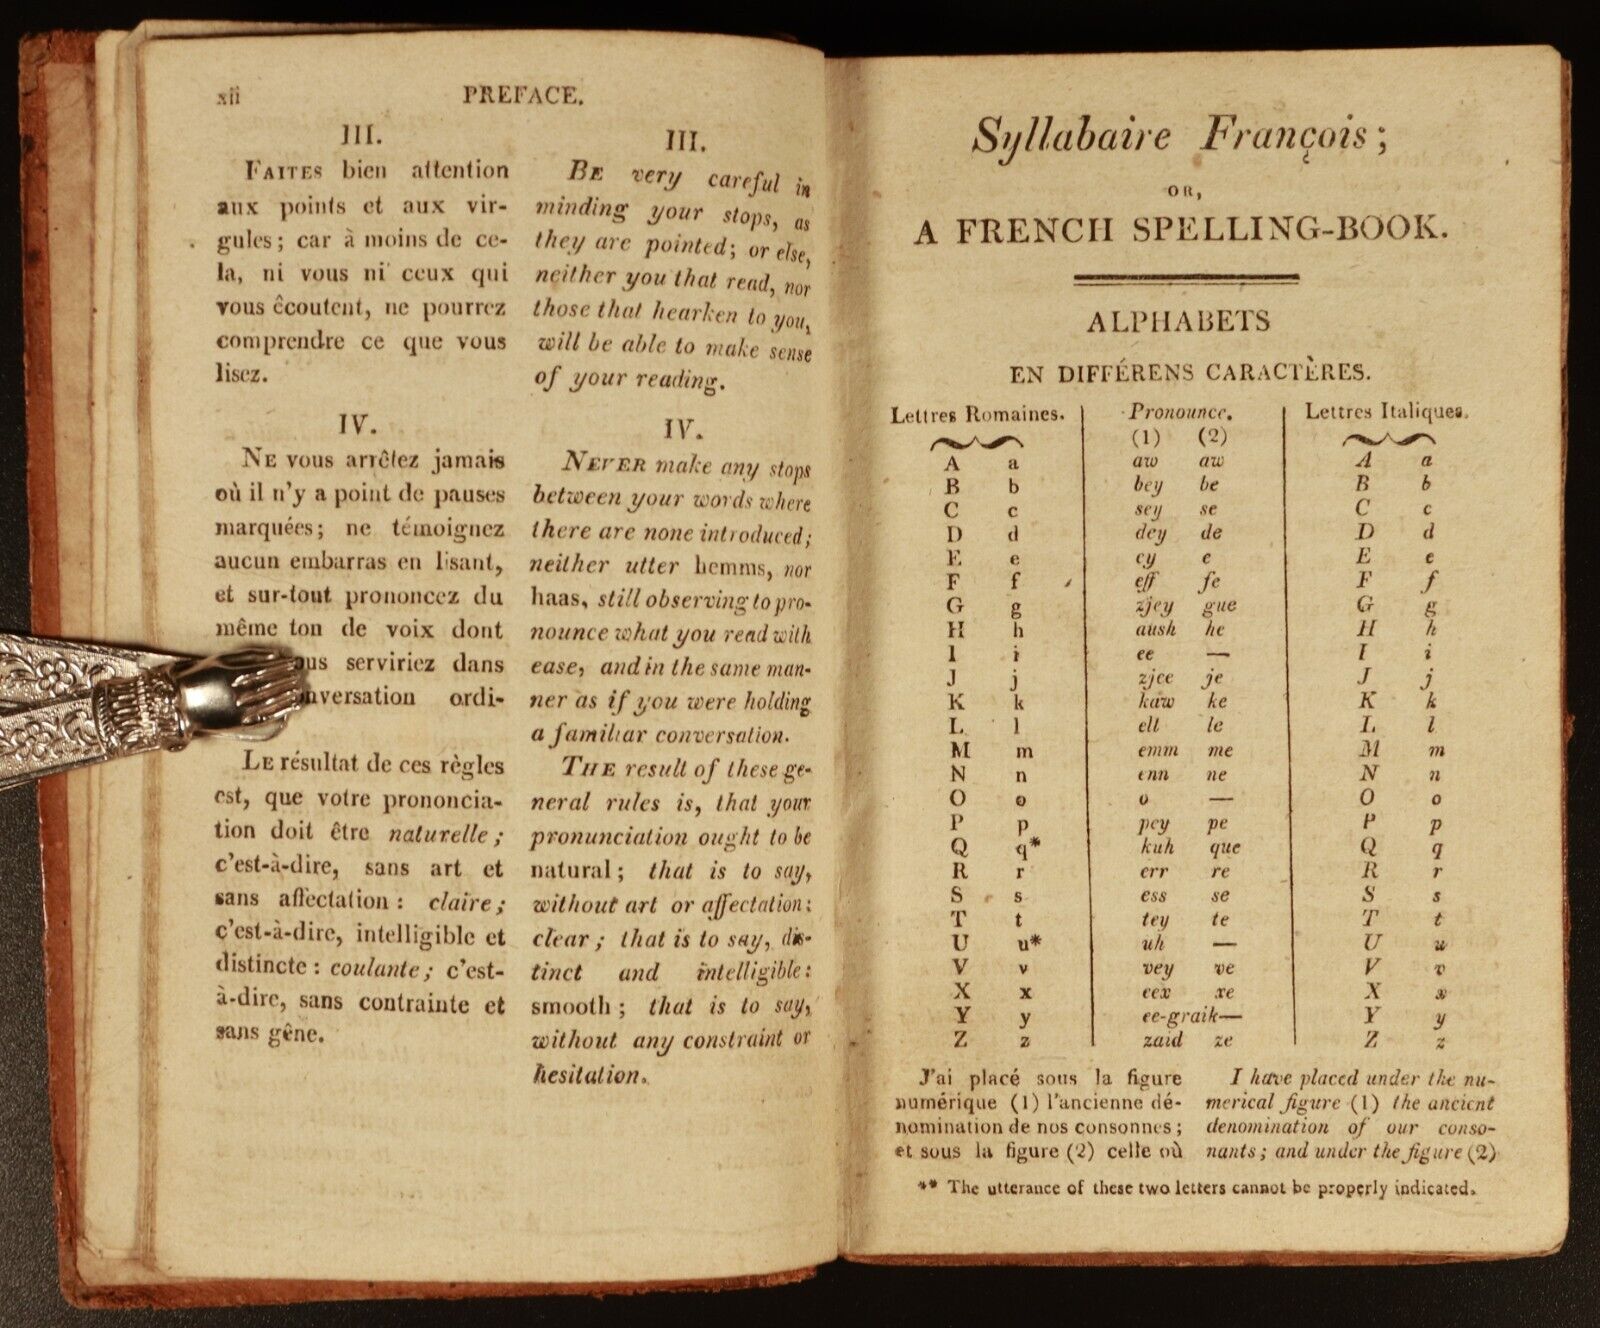 xii PREFACE.
III.
FAITES bien attention
aux points et aux vir-
gules; car à moins de ce-
la, ni vous ni ceux qui
vous écoutent, ne pourrez
comprendre ce que vous
lisez.
IV.
NE vous arrêtez jamais
où il n'y a point de pauses
marquées; ne témoignez
aucun embarras en lisant,
et sur-tout prononcez du
même ton de voix dont
serviriez dans
ordi-
LE résultat de ces règles
est, que votre prononcia-
tion doit être naturelle;
c'est-à-dire, sans art et
sans affectation: claire;
c'est-à-dire, intelligible et
distincte: coulante; c'est-
à-dire, sans contrainte et
sans gêne.
III.
BE very careful in
minding your stops, as
they are pointed; or else,
neither you that read, nor
those that hearken to you,
will be able to make sense
of your reading.
IV.
NEVER make any stops
between your words where
there are none introduced;
neither utter hemms, nor
haas, still observing to pro-
nounce what you read with
ease, and in the same man-
ner as if you were holding
a familiar conversation.
THE result of these ge-
neral rules is, that your
pronunciation ought to be
natural; that is to say,
without art or affectation:
clear; that is to say, dis-
tinct and intelligible:
smooth; that is to say,
without any constraint or
hesitation.
Syllabaire François;
OR,
A FRENCH SPELLING-BOOK.
ALPHABETS
EN DIFFÉRENS CARACTÈRES.
Lettres Romaines. Pronounce. Lettres Italiques.
(1) (2)
A a aw aw A a
B b bey be B b
C c sey se C c
D d dey de D d
E e ey e E e
F f eff fe F f
G g zjey gue G g
H h aush he H h
I i ee — I i
J j zjee je J j
K k kaw ke K k
L l ell le L l
M m emm me M m
N n enn ne N n
O o o — O o
P p pey pe P p
Q q* kuh que Q q
R r err re R r
S s ess se S s
T t tey te T t
U u* uh — U u
V v vey ve V v
X x eex xe X x
Y y ee-graik— Y y
Z z zaid ze Z z
J'ai placé sous la figure
numérique (1) l'ancienne dé-
nomination de nos consonnes;
et sous la figure (2) celle où
I have placed under the nu-
merical figure (1) the ancient
denomination of our conso-
nants; and under the figure (2)
** The utterance of these two letters cannot be properly indicated.